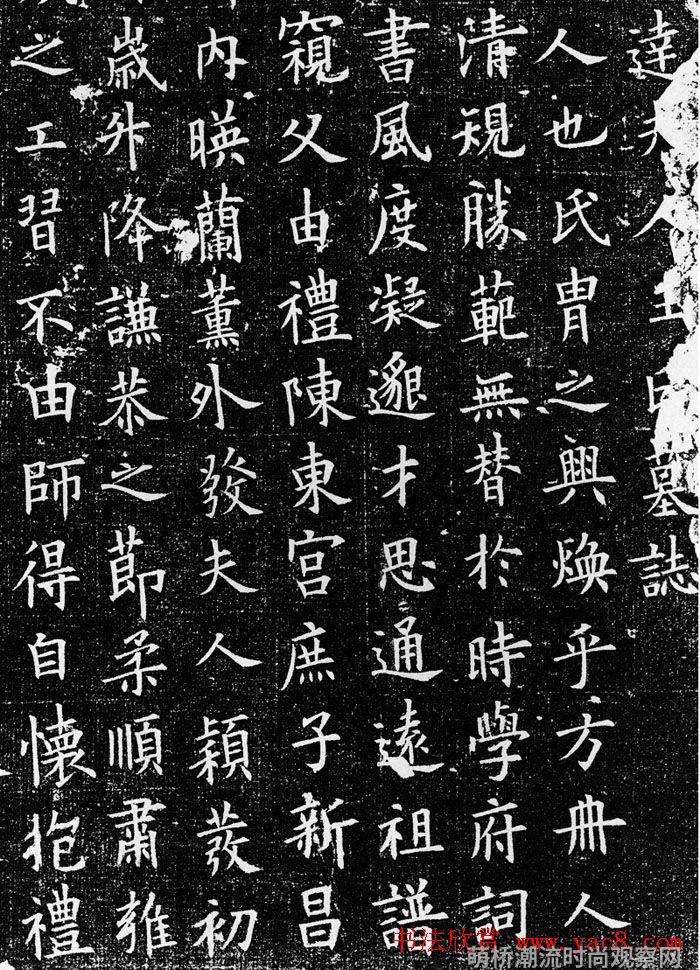 達夫人王氏墓誌
人也氏胄之興煥乎方冊人
清規勝範無替於時學府詞
書風度凝邈才思通遠祖
窺父由禮陳東宮庶子新昌
內暎蘭薰外發夫人穎發初
歲升降謙恭之節柔順肅雍
之工習不由師得自懷抱禮
书法欣赏 www.yac8.com
萌桥潮流时尚观察网